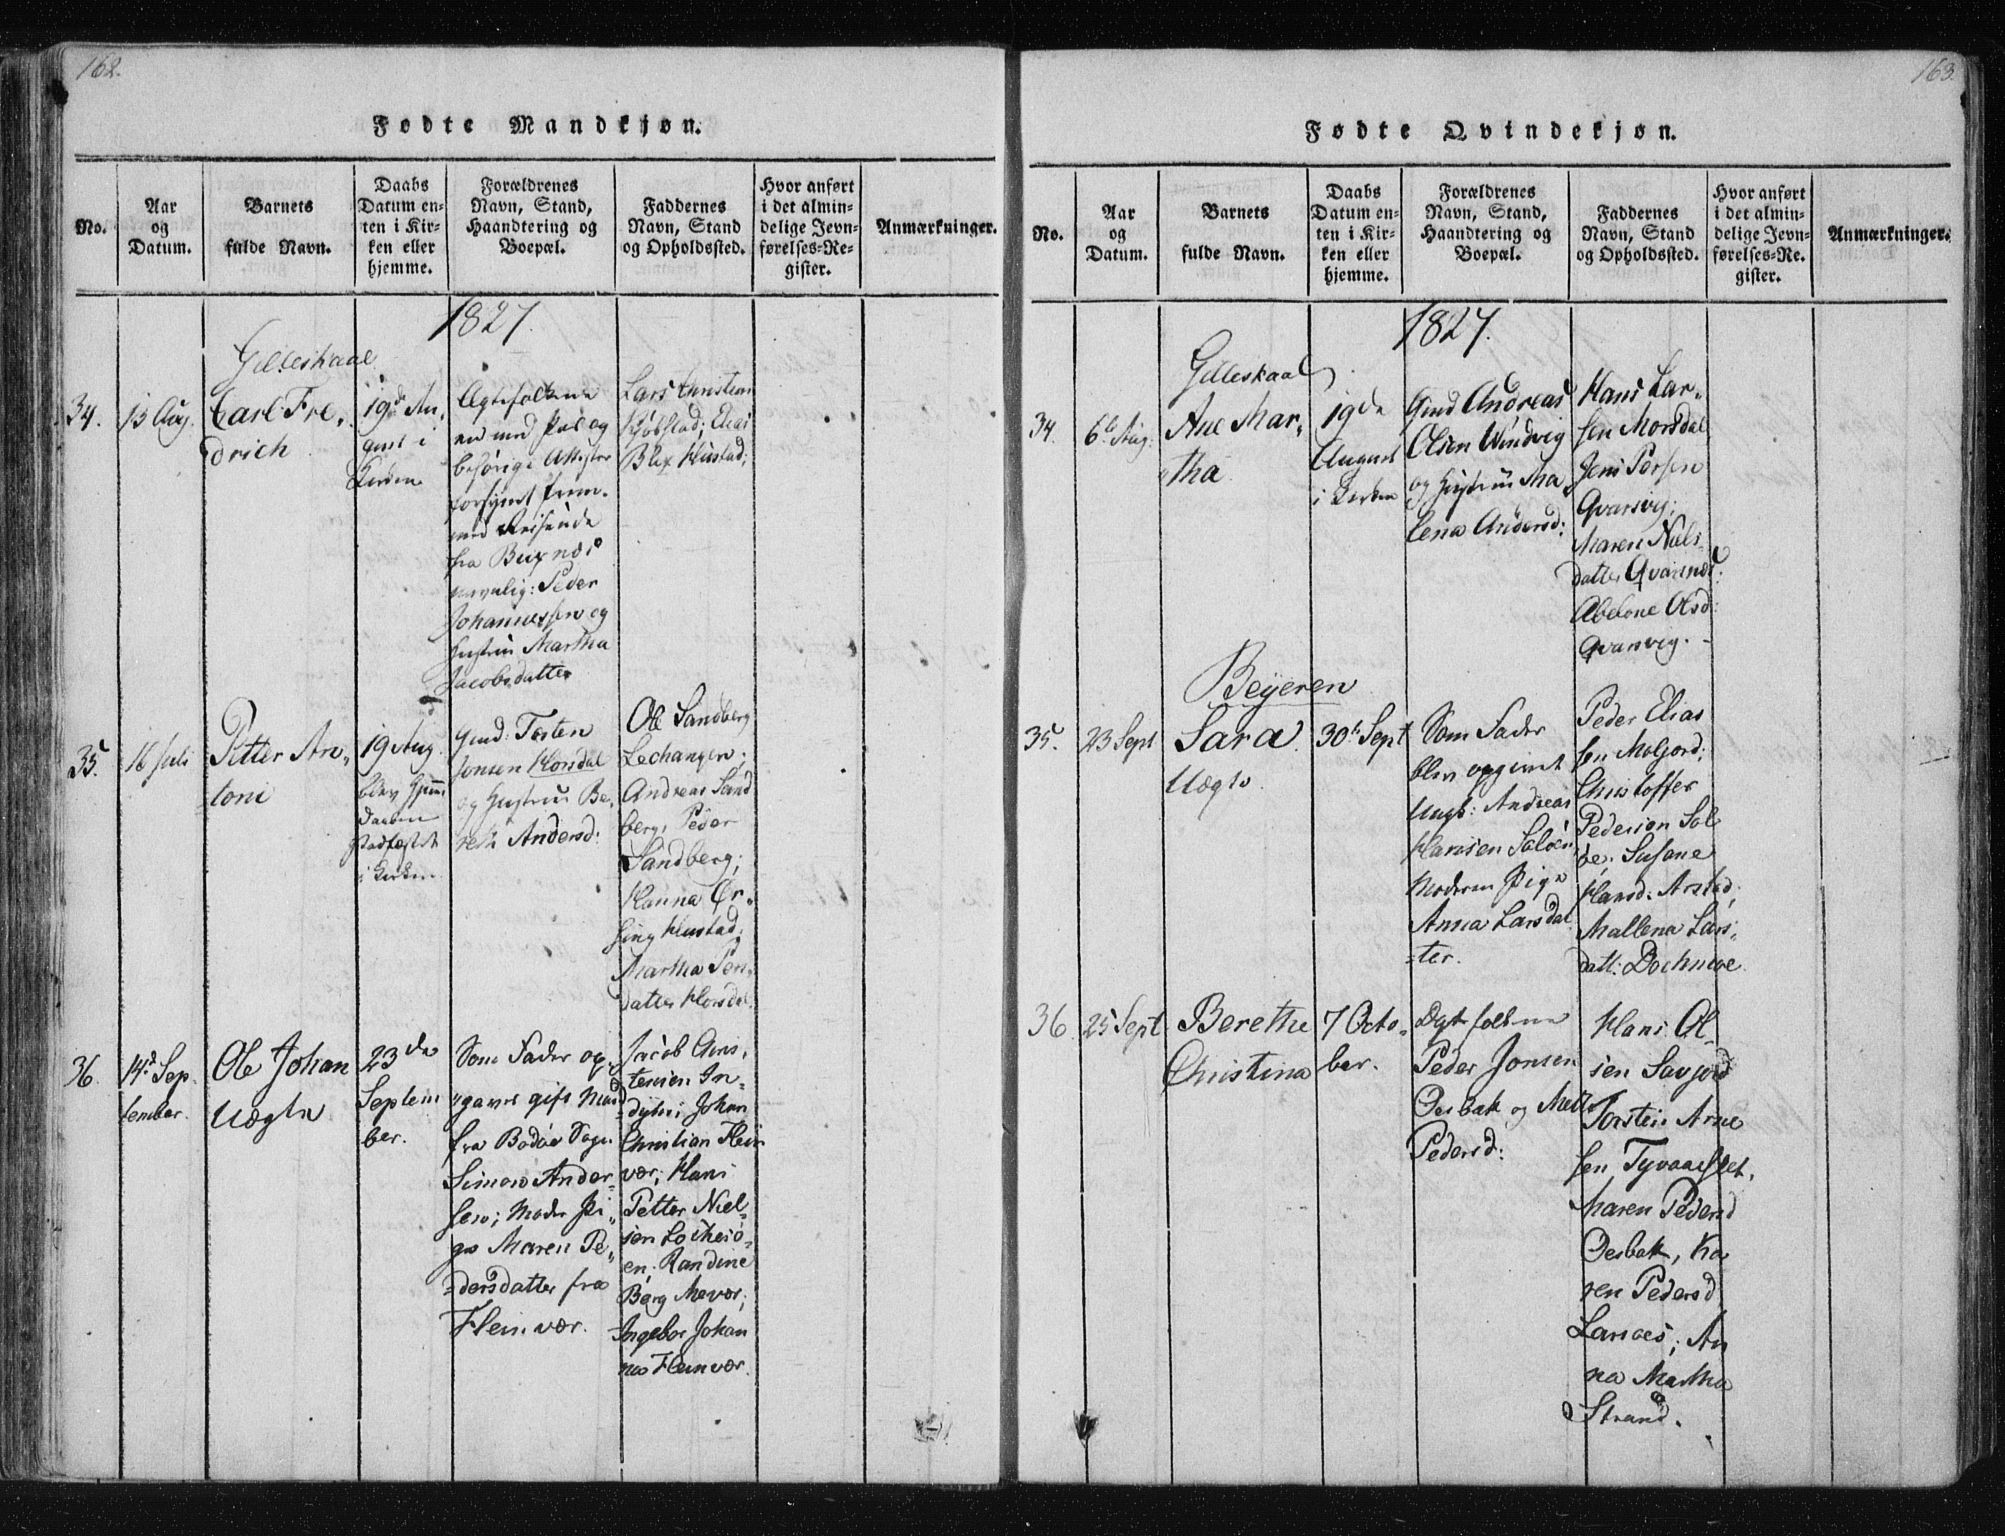 162.
Fødte Mandkjøn.
No.
Aar
og
Datum.
Barnets
fulde Navn.
Daabs
Datum en-
ten i Kir-
ken eller
hjemme.
Forældrenes
Navn, Stand,
Haandtering og
Boepæl.
Faddernes
Navn, Stand
og Opholdssted.
Hvor anført
i det almin-
delige Jevn-
førelses-Re-
gister.
Anmærkninger.
1827.
Gilleskaal
34.
15 Aug.
Carl Fre-
drich
19de Au-
gust i
Kirken
Ægtefolkene
med Pas og
fra Buxnæs
navnlig: Peder
Johannessen og
Hustrue Martha
Jacobsdatter
Lars Christian
Elias
Blix Hustad;
35.
16 Juli
Petter An-
toni
19 Aug.
blev Hjemme
Daaben
stadfæstet
i Kirken
Gmd: Torsten
Jonsen Horsdal
og Hustrue Be-
reth Andersd:
Ole Sandberg
Andreas Sand
berg, Peder
Sandberg;
Hanna
Hustad;
Martha
datter Horsdal.
36.
14d Sep
tember.
Ole Johan
Uægte
23de
Septem
ber.
Som Fader op-
gaves gift Mand
fra Bodøe Sogn
Simon Ander-
sen; Moder Pi-
ge Maren Pe-
dersdatter fra
Fleinvær.
Jacob Chris-
tensen In-
dyhr; Johan
Christian Flein
vær; Hans
Petter Niel-
sen
en; Randine
Berg
Ingebor Johan
Fleinvær.
163.
Fødte Qvindekjøn.
No.
Aar
og
Datum.
Barnets
fulde Navn.
Daabs
Datum en-
ten i Kir-
ken eller
hjemme.
Forældrenes
Navn, Stand,
Haandtering og
Boepæl.
Faddernes
Navn, Stand
og Opholdssted.
Hvor anført
i det almin-
delige Jevn-
førelses-Re-
gister.
Anmærkninger.
1827.
Gilleskaal
34.
6te Aug:
Ane Mar-
tha
19de
August
i Kirken
Gmd Andreas
Olsen Windvig
og Hustrue Ma
lena Andersd:
Hans Lar-
sen Morsdal
Jens Persen
Qvarsvig;
Maren Niels-
datter Qvarnes:
Abelone Olsd:
Qvarsvig.
Beyeren
35.
23 Sept
Sara
Uægte.
30te Sept
Som Fader
blev opgivet
Ungk: Andreas
Hansen Soløen
Moderen Pige
Anna Larsdat
ter.
Peder Elias
sen Moljord;
Christoffer
Pedersen Sol
øen Susane
Hansd: Arstad;
Mallena Lars-
datt:
36
25 Sept
Berethe
Christina
7 Octo-
ber.
Ægtefolkene
Peder Jonsen
Oesbak og Mette
Pedersd:
Hans Ol-
sen Savjord
Torsten Arne
sen Tvervaaslet,
Maren Pedersd
Oesbak, Ka
ren Pedersd
Larsoes; An
na Martha
Strand.